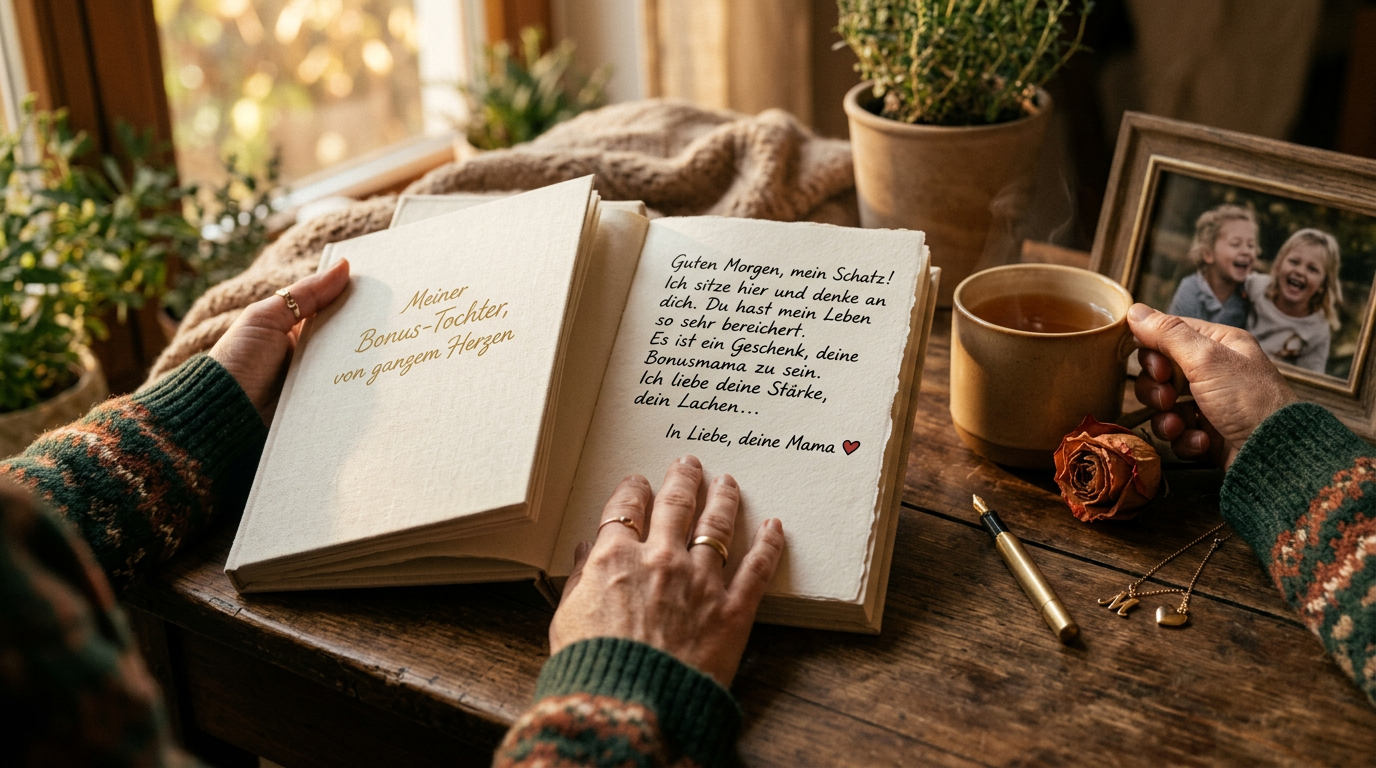 Meiner
Bonus-Tochter,
von ganzem Herzen
Guten Morgen, mein Schatz!
Ich sitze hier und denke an
dich. Du hast mein Leben
so sehr bereichert.
Es ist ein Geschenk, deine
Bonusmama zu sein.
Ich liebe deine Stärke,
dein Lachen...
In Liebe, deine Mama ❤️
M